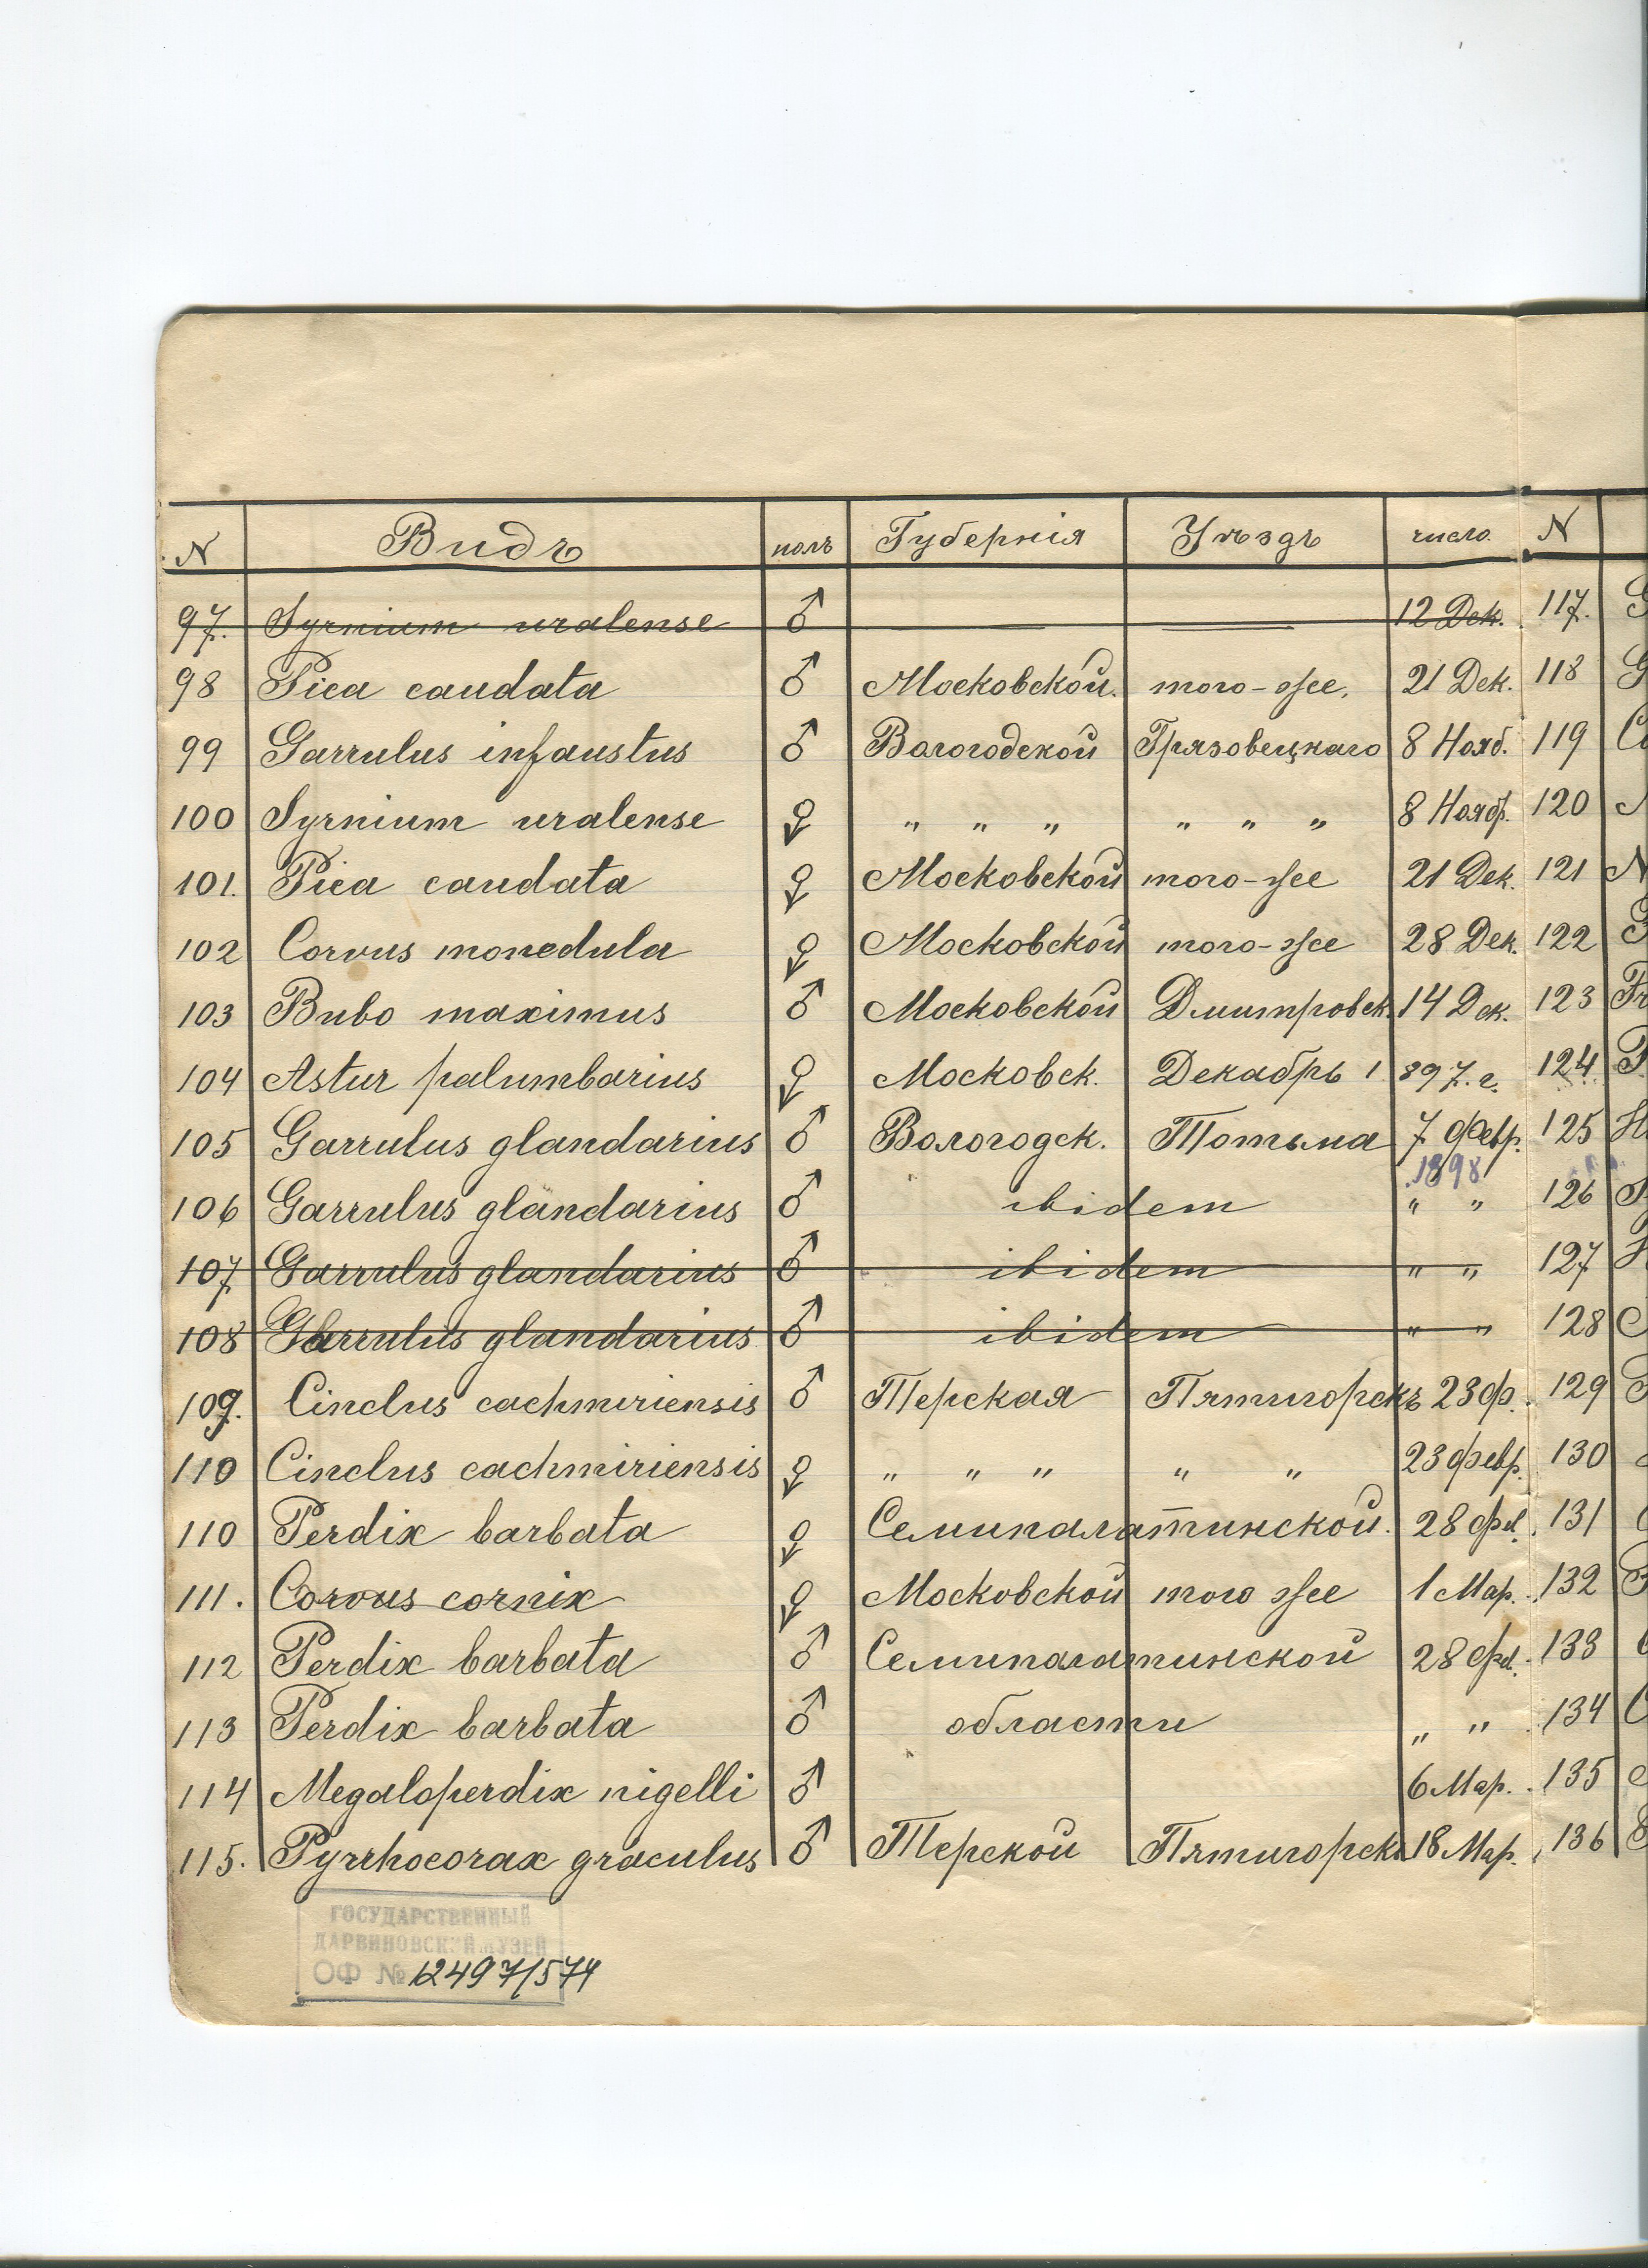 N Видъ полъ Губернія Уѣздъ число. N
97. Syrnium uralense ♂ — — 12 Дек. 117.
98 Pica caudata ♂ Московской. того-же. 21 Дек. 118
99 Garrulus infaustus ♂ Вологодской Грязовецкаго 8 Нояб. 119
100 Syrnium uralense ♀ " " " " " " 8 Нояб. 120
101. Pica caudata ♀ Московской того-же 21 Дек. 121
102 Corvus monedula ♀ Московской того-же 28 Дек. 122
103 Bubo maximus ♂ Московской Дмитровск. 14 Дек. 123
104 Astur palumbarius ♀ Московск. Декабрь 1 897. г. 124
105 Garrulus glandarius ♂ Вологодск. Тотьма 7 Февр. 125
1898
106 Garrulus glandarius ♂ ibidem " " 126
107. Garrulus glandarius ♂ ibidem " " 127
108 Garrulus glandarius ♂ ibidem " " 128
109. Cinclus cachmiriensis ♂ Терская Пятигорскъ 23 ф. 129
110 Cinclus cachmiriensis ♀ " " " " " 23 февр. 130
110 Perdix barbata ♀ Семипалатинской. 28 фв. 131
111. Corvus cornix ♀ Московской того же 1 Мар. 132
112 Perdix barbata ♂ Семипалатинской 28 фв. 133
113 Perdix barbata ♂ области " " 134
114 Megaloperdix nigelli ♂ 6 Мар. 135
115. Pyrrhocorax graculus ♂ Терской Пятигорск. 18 Мар. 136
ГОСУДАРСТВЕННЫЙ
ДАРВИНОВСКИЙ МУЗЕЙ
ОФ № 12497/574